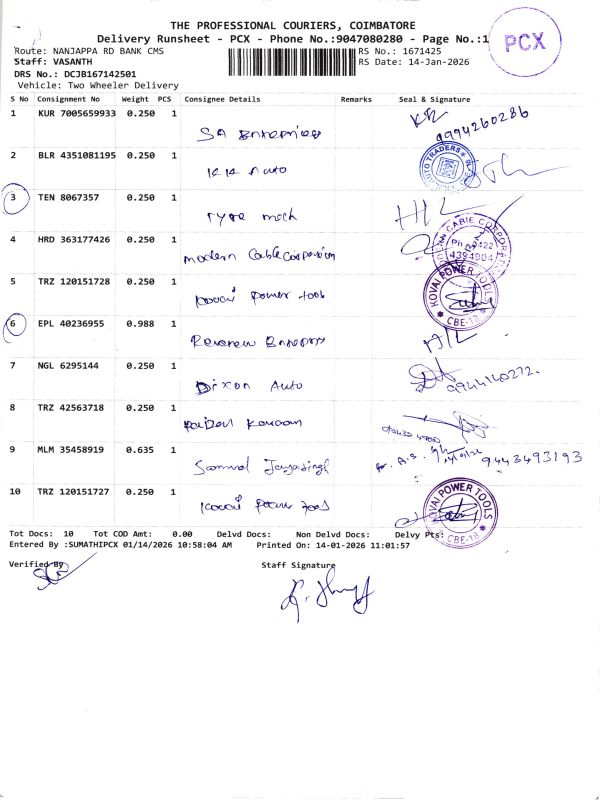 THE PROFESSIONAL COURIERS, COIMBATORE
Delivery Runsheet - PCX - Phone No.:9047080280 - Page No.:1
PCX
Route: NANJAPPA RD BANK CMS
RS No.: 1671425
Staff: VASANTH
RS Date: 14-Jan-2026
DRS No.: DCJB167142501
Vehicle: Two Wheeler Delivery
S No Consignment No Weight PCS Consignee Details Remarks Seal & Signature
1 KUR 7005659933 0.250 1
SA Enterprises
9994260286
2 BLR 4351081195 0.250 1
KK Auto
AUTO TRADERS
3 TEN 8067357 0.250 1
Tyre mech
H/L
4 HRD 363177426 0.250 1
Modern Cable Corporation
CABLE CORPORATION
Ph 0422
4394904
5 TRZ 120151728 0.250 1
Kovai Power tools
KOVAI POWER TOOLS
CBE-18
6 EPL 40236955 0.988 1
Enterprises
H/L
7 NGL 6295144 0.250 1
Dixon Auto
9944140272.
8 TRZ 42563718 0.250 1
9 MLM 35458919 0.635 1
Samuel Jayasingh
9443493193
10 TRZ 120151727 0.250 1
Kovai Power tools
KOVAI POWER TOOLS
CBE-18
Tot Docs: 10 Tot COD Amt: 0.00 Delvd Docs: Non Delvd Docs: Delvy Pts:
Entered By :SUMATHIPCX 01/14/2026 10:58:04 AM Printed On: 14-01-2026 11:01:57
Verified By
Staff Signature